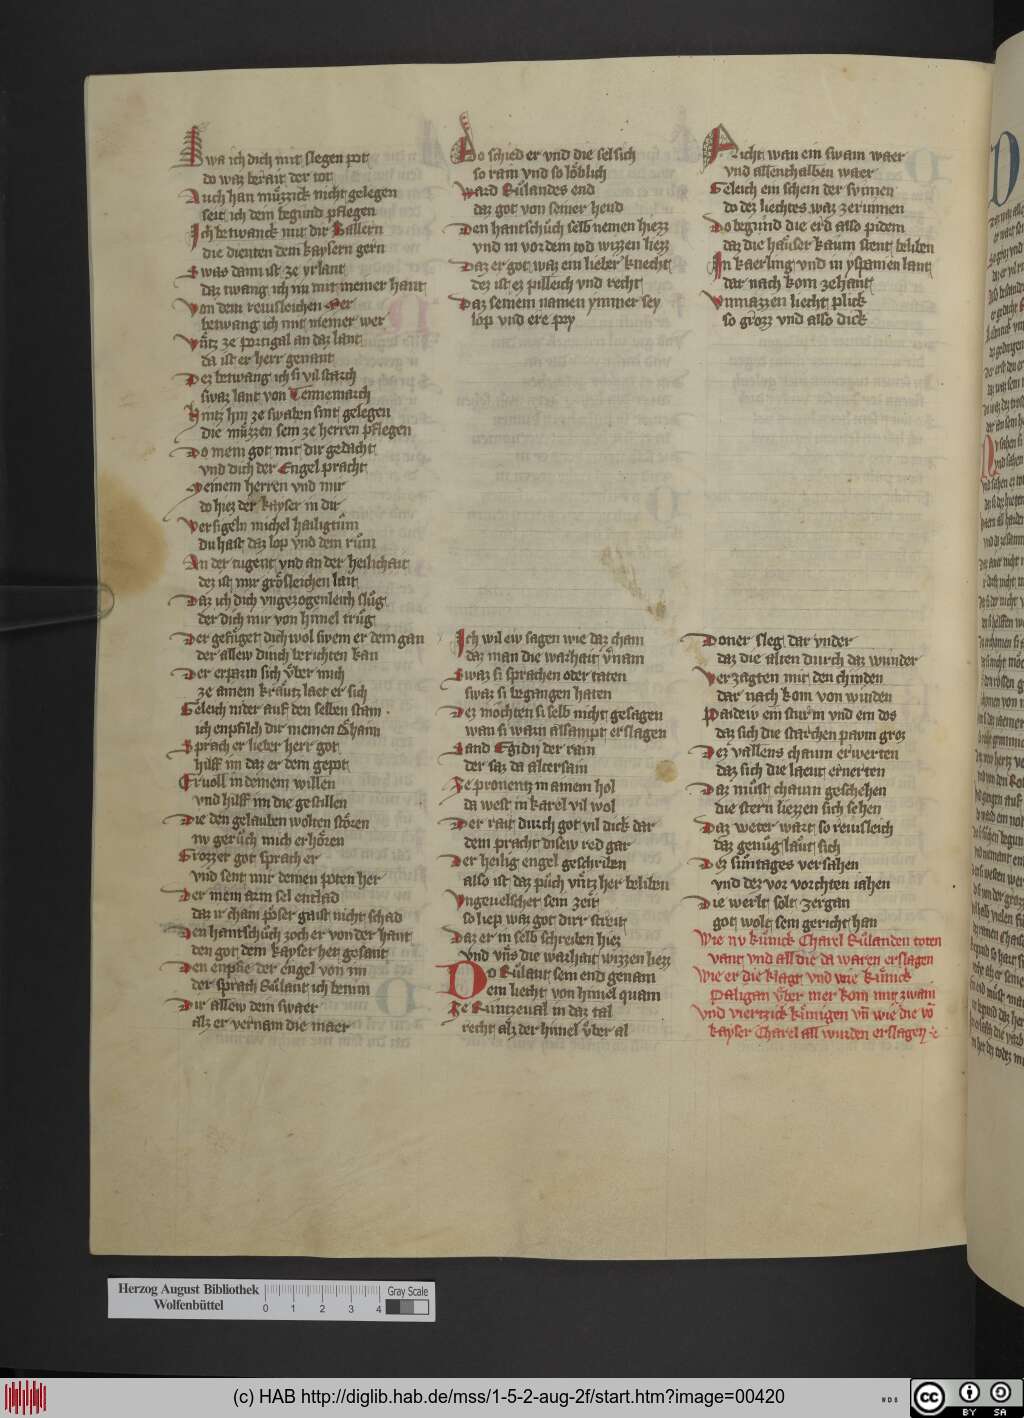 Swa ich dich mit slegen pot
do waz berait der tot
Auch han müzzick nicht gelegen
seit ich dem begund pflegen
Ich betwanck mit dir Ballern
die dienten dem kaysern gern
Swaz dann ist ze yrlant
daz twang ich im mit meiner hant
Von dem rewsleichen Mer
betwang ich mit meiner wer
Vntz ze portigal an daz lant
da ist er herr genant
Dez betwang ich si vil starch
swaz lant von Tennemarch
Hintz hin ze swaben sint gelegen
die müzzen sein ze herren pflegen
Do mein got mit dir gedacht
vnd dich der Engel pracht
Meinem herren vnd mir
do hiez der kayser in dir
Versigeln michel hailigtům
du hast daz lop vnd den rům
An der tugent vnd an der heilichait
dez ist mir grösleichen lait
Daz ich dich vngezogenleich slůg
der dich mir von himel trůg
Der gefüget dich wol swem er dem gan
der allew dinch berichten kan
Der erparm sich vber mich
ze ainem kräutz laet er sich
Geleich nider auf den selben stam
ich enpfilch dir meinen Öhaim
Sprach er lieber herr got
hilff im daz er dem gepot
Ervoll in deinem willen
vnd hilff im die gestillen
Die den gelauben wolten stören
nv gerůch mich erhören
Grozzer got sprach er
vnd sent mir deinen poten her
Der mein arm sel entlad
daz ir cham pöser gaist nicht schad
Den hantschůch zoch er von der hant
den got dem kayser het gesant
Den enpfie der engel von im
der sprach Růlant ich benim
Dir allew dein swaer
alz er vernam die maer
Do schied er vnd die sel sich
so rain vnd so löblich
Ward Růlandes end
daz got von seiner hend
Den hantschůch selb nemen hiezz
vnd in vor dem tod wizzen liezz
Daz er got waz ein lieber knecht
dez ist ez pilleich vnd recht
Daz seinem namen ymmer sey
lop vnd ere pey
Ich wil ew sagen wie daz cham
daz man die warhait vernam
Swaz si sprachen oder taten
swaz si begangen haten
Dez möchten si selb nicht gesagen
wan si warn allsampt erslagen
Sand Egidy der rain
der saz da altersain
Ze prouentz in ainem hol
da west in karel vil wol
Der rait durch got vil dick dar
dem pracht disew red gar
Der heilig engel geschriben
also ist daz půch vntz her beliben
Vngeuelscher sein zeit
so liep waz got dirr streit
Daz er in selb schreiben hiez
vnd vns die warhait wizzen liezz
Do Růlant sein end genam
ein liecht von himel quam
Ze Runtzeual in daz tal
recht alz der himel vber al
Nicht wan ein swaim waer
vnd allenthalben waer
Geleich ein schein der synnen
do dez liechtes waz zerunnen
Do begund die erd also pidem
daz die häuser kaum stent beliben
In kaerling vnd in yspanien lant
dar nach kom zehant
Vnmazzen liecht plick
so grozz vnd also dick
Doner sleg dar vnder
daz die alten durch daz wunder
Verzagten mit den chinden
dar nach kom von winden
Paidew ein sturm vnd ein dos
daz sich die starchen pawm groz
Dez vallens chaum erwerten
daz sich die laeut ernerten
Daz müst chaum geschehen
die stern liezzen sich sehen
Daz weter wart so rewsleich
daz genůg läut sich
Dez suntages versahen
vnd dez vor vorchten iahen
Die werlt solt zergan
got wolt sein gericht han
Wie nv Künick Charel Růlanden toten
vant vnd all die da waren erslagen
Wie er die klagt vnd wie künick
Paligan vber mer kom mit zwain
vnd viertzick künigen vn wie die vö
kayser Charel all wurden erslagen
Herzog August Bibliothek
Wolfenbüttel
0 1 2 3 4
Gray Scale
(c) HAB http://diglib.hab.de/mss/1-5-2-aug-2f/start.htm?image=00420
WD6
cc BY SA